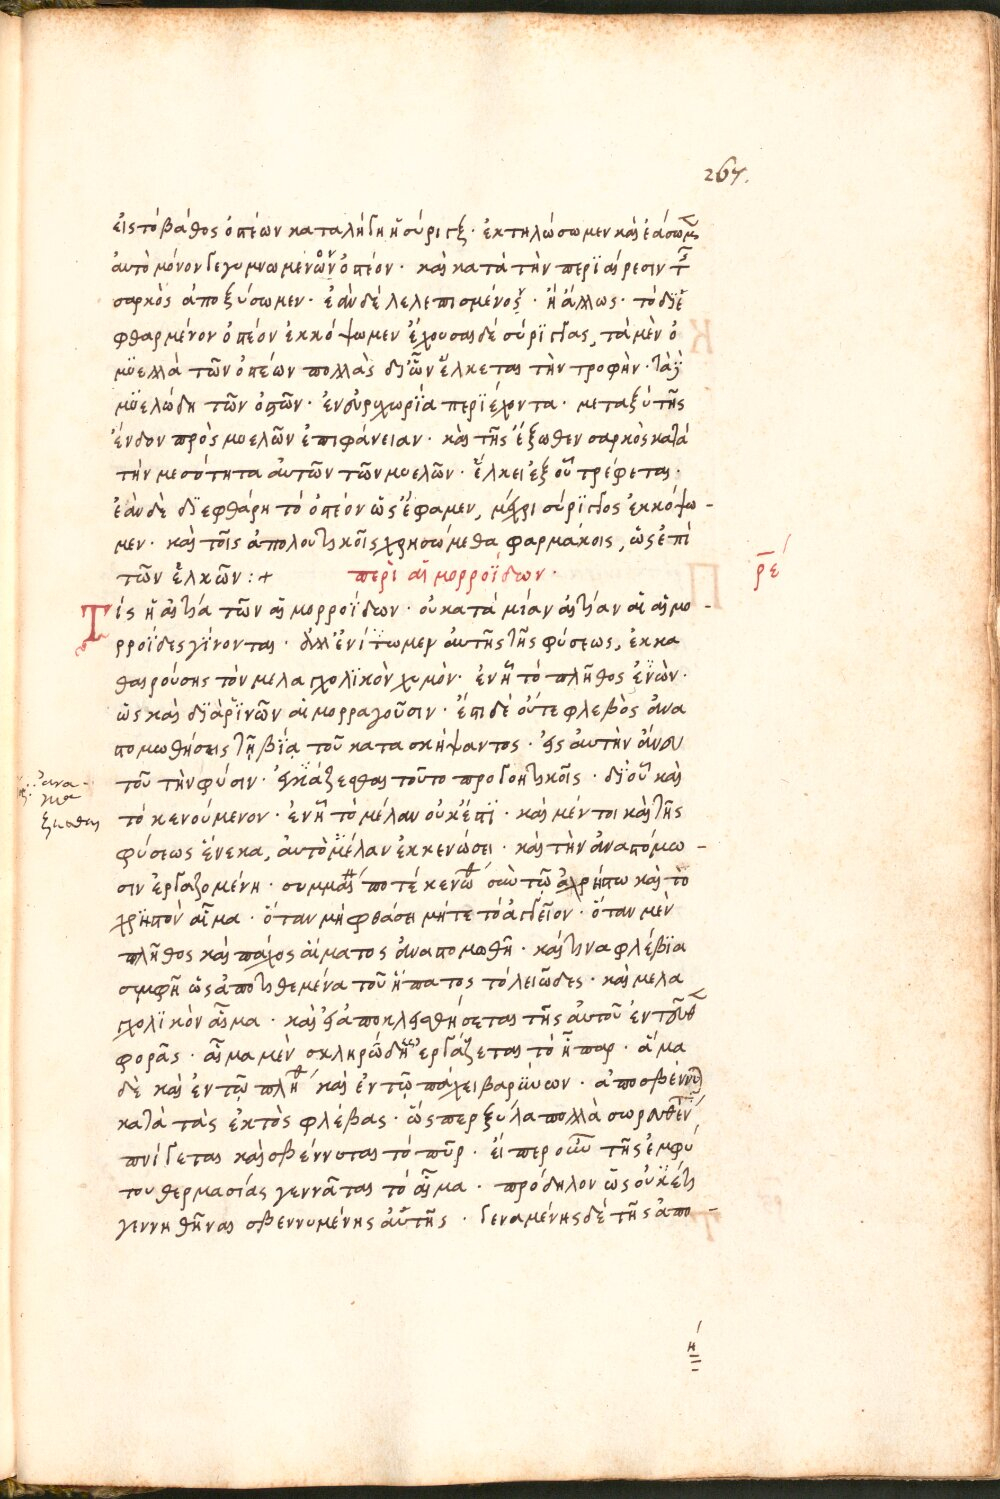 267.
εἰς τὸ βάθος ὀστέων καταλήγη ἡ σύριγξ · ἐκτηλώσωμεν καὶ ἐάσωμεν
αὐτὸ μόνον γεγυμνωμένον ὀστέον · καὶ κατὰ τὴν περϊαίρεσιν τῆς
σαρκὸς ἀποξύσωμεν · ἐὰν δὲ λελεπισμένος · ἢ ἄλλως · τὸ διε
φθαρμένον ὀστέον ἐκκόψωμεν ἔχουσαι δὲ σύρϊγγας, τὰ μὲν ὁ
μϋελλὰ τῶν ὀστέων πολλὰς δι' ὧν ἕλκεται τὴν τροφὴν · τὰ
μϋελώδη τῶν ὀστῶν · ἐν εὐρυχωρία περϊέχοντα · μεταξὺ τῆς
ἔνδον πρὸς μυελῶν ἐπιφάνειαν · καὶ τῆς ἔξωθεν σαρκὸς κατὰ
τὴν μεσότητα αὐτῶν τῶν μυελῶν · ἕλκει ἐξ οὗ τρέφεται ·
ἐὰν δὲ διεφθάρη τὸ ὀστέον ὡς ἔφαμεν, μέχρι σύρϊγγος ἐκκόψω -
μεν · καὶ τοῖς ἀπουλωτικοῖς χρησώμεθα φαρμάκοις, ὡς ἐπὶ
τῶν ἑλκῶν : + περὶ αἱμορροΐδων ·
ρε
Τίς ἡ αἰτία τῶν αἱμορροΐδων · οὐ κατὰ μίαν αἰτίαν αἱ αἱμο -
ρροΐδες γίνονται · ἀλλ' ἐνίοτε μὲν αὐτῆς τῆς φύσεως, ἐκκα
θαιρούσης τὸν μελαγχολϊκὸν χυμὸν · ἐν ᾗ τὸ πλῆθος ἐνὼν ·
ὡς καὶ διὰ ῥινῶν αἱμορραγοῦσιν · ἐπὶ δὲ οὔτε φλεβὸς ἀνα
στομωθήσεις τῇ βία τοῦ κατασκήψαντος · εἰς αὐτὴν ἄνευ
τοῦ τὴν φύσιν · εἰκάζεσθαι τοῦτο προγοητικοῖς · δι' οὗ καὶ
ἀνα -
γκα
ζεσθαι
τὸ κενούμενον · ἐν ᾗ τὸ μέλαν οὐκ ἔστϊ · καὶ μέντοι καὶ τῆς
φύσεως ἕνεκα, αὐτὸ μέλαν ἐκκενώσει · καὶ τὴν ἀναστόμω -
σιν ἐργαζομένη · συμμα ποτέ κενω σὺν τῷ ἀχρήστω καὶ τὸ
χρϊηστὸν αἷμα · ὅταν μὴ φθάσει μήτε τὸ ἀγγεῖον · ὅταν μὲν
πλῆθος καὶ πάχος αἵματος ἀναστομωθῆ · καὶ τινα φλέβϊα
συμφῆ ὡς ἀποτιθεμένα τοῦ ἥπατος τὸ λειῶδες · καὶ μελα
γχολϊκὸν αἷμα · καὶ εἰ ἀποκλεισθήσεται τῆς αὐτοῦ ἐντεῦθεν
φορᾶς · αἷμα μὲν σκληρῶδες ἐργάζεται τὸ ἧπαρ · ἅμα
δὲ καὶ ἐν τῷ πλήθει καὶ ἐν τῷ πάχει βαρϋύεων · ἀποσβένν
κατὰ τὰς ἐκτὸς φλέβας · ὥσπερ ξύλα πολλὰ σωρευθέν
πνίγεται καὶ σβέννυται τὸ πῦρ · εἴπερ οὖν τῆς ἐμφύ
του θερμασίας γεννᾶται τὸ αἷμα · πρόδηλον ὡς οὐκέτι
γεννηθῆναι σβεννυμένης αὐτῆς · γεναμένης δὲ τῆς ἀπο -
η